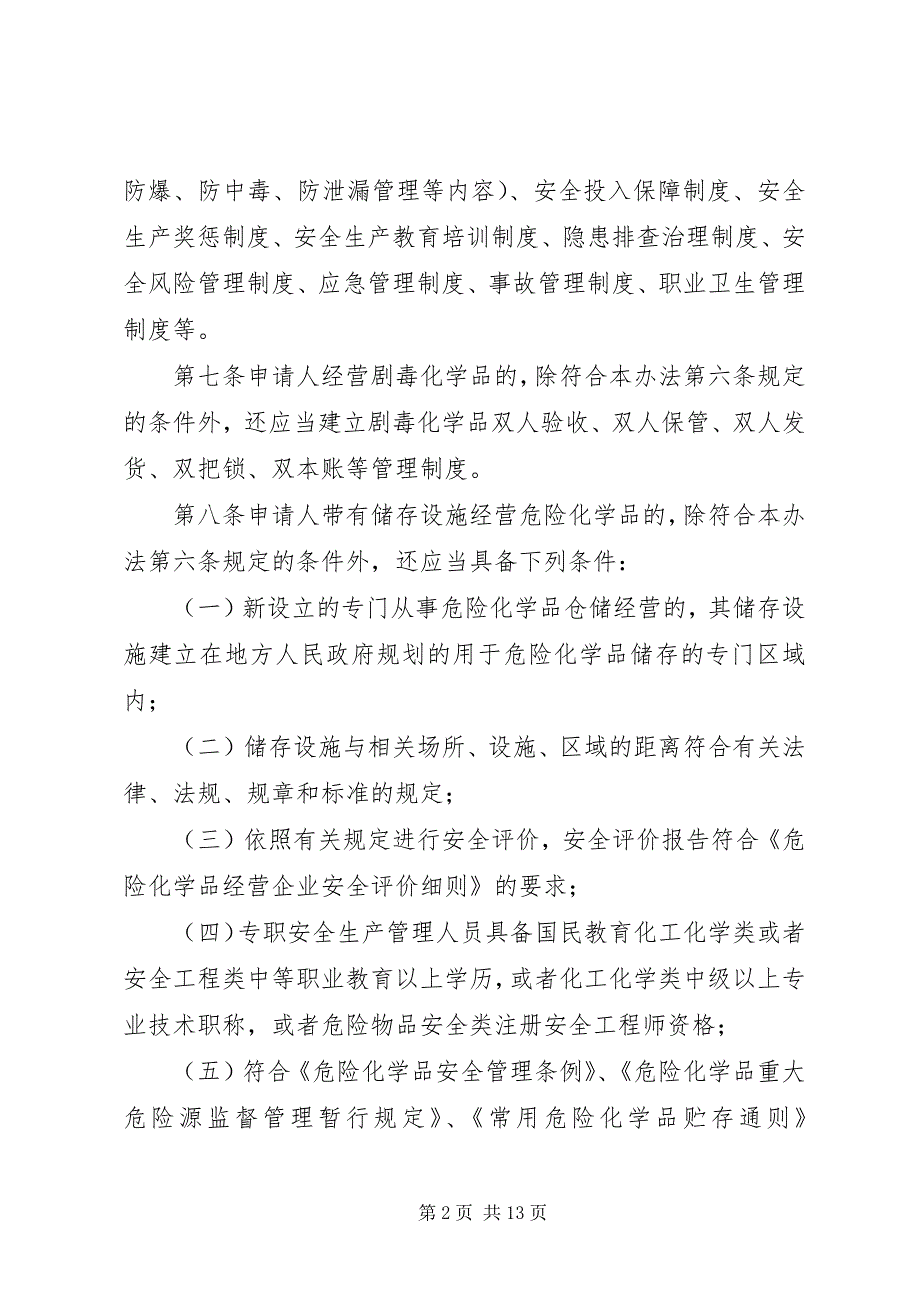 防爆、防中毒、防泄漏管理等内容)、安全投入保障制度、安全
生产奖惩制度、安全生产教育培训制度、隐患排查治理制度、安
全风险管理制度、应急管理制度、事故管理制度、职业卫生管理
制度等。
第七条申请人经营剧毒化学品的，除符合本办法第六条规定
的条件外，还应当建立剧毒化学品双人验收、双人保管、双人发
货、双把锁、双本账等管理制度。
第八条申请人带有储存设施经营危险化学品的，除符合本办
法第六条规定的条件外，还应当具备下列条件：
（一）新设立的专门从事危险化学品仓储经营的，其储存设
施建立在地方人民政府规划的用于危险化学品储存的专门区域
内；
（二）储存设施与相关场所、设施、区域的距离符合有关法
律、法规、规章和标准的规定；
（三）依照有关规定进行安全评价，安全评价报告符合《危
险化学品经营企业安全评价细则》的要求；
（四）专职安全生产管理人员具备国民教育化工化学类或者
安全工程类中等职业教育以上学历，或者化工化学类中级以上专
业技术职称，或者危险物品安全类注册安全工程师资格；
（五）符合《危险化学品安全管理条例》、《危险化学品重大
危险源监督管理暂行规定》、《常用危险化学品贮存通则》
第2页 共13页